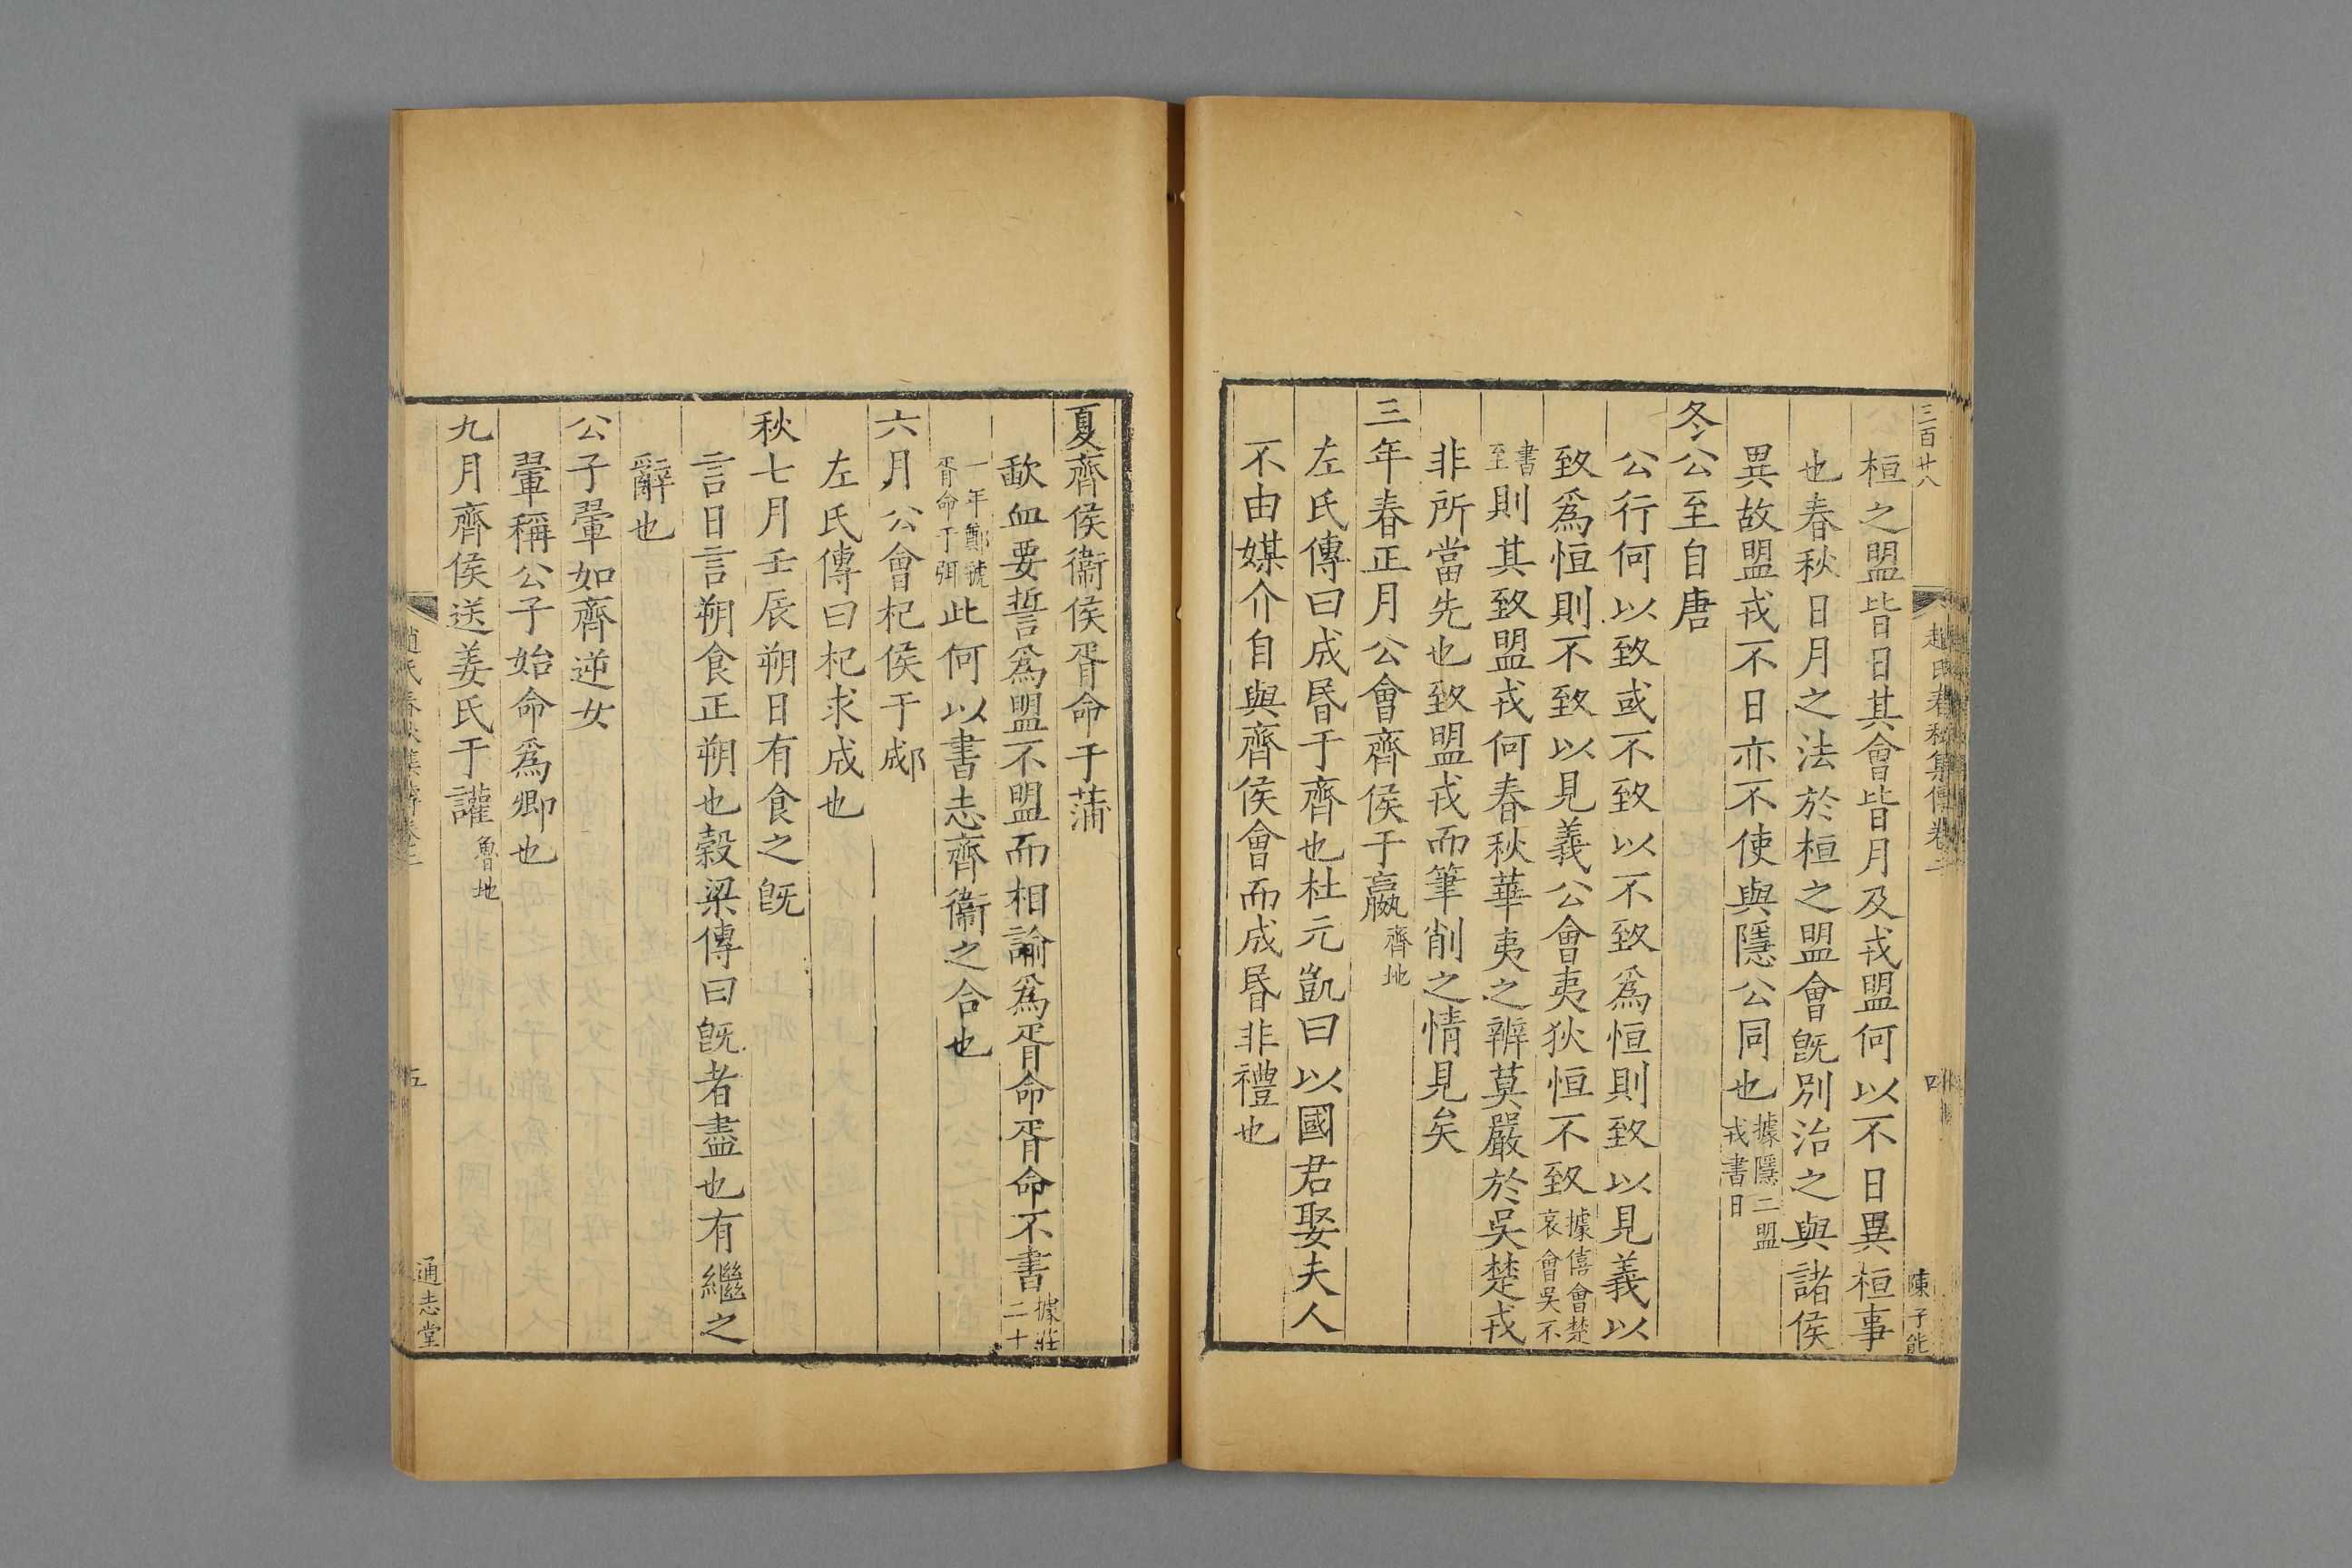 三百廿八
趙氏春秋集傳卷二
四
陳子能
桓之盟皆日其會皆月及戎盟何以不日異桓事
也春秋日月之法於桓之盟會旣別治之與諸侯
異故盟戎不日亦不使與隱公同也據隱二盟戎書日
冬公至自唐
公行何以致或不致以不致爲恒則致以見義以
致爲恒則不致以見義公會夷狄恒不致據僖會楚哀會吳不
書至則其致盟戎何春秋華夷之辨莫嚴於吳楚戎
非所當先也致盟戎而筆削之情見矣
三年春正月公會齊侯于嬴齊地
左氏傳曰成昏于齊也杜元凱曰以國君娶夫人
不由媒介自與齊侯會而成昏非禮也
夏齊侯衞侯胥命于蒲
歃血要誓爲盟不盟而相諭爲胥命胥命不書據莊二十
一年鄭虢胥命于弭此何以書志齊衞之合也
六月公會杞侯于郕
左氏傳曰杞求成也
秋七月壬辰朔日有食之旣
言日言朔食正朔也穀梁傳曰旣者盡也有繼之
辭也
公子翬如齊逆女
翬稱公子始命爲卿也
九月齊侯送姜氏于讙魯地
趙氏春秋集傳卷二
五
通志堂